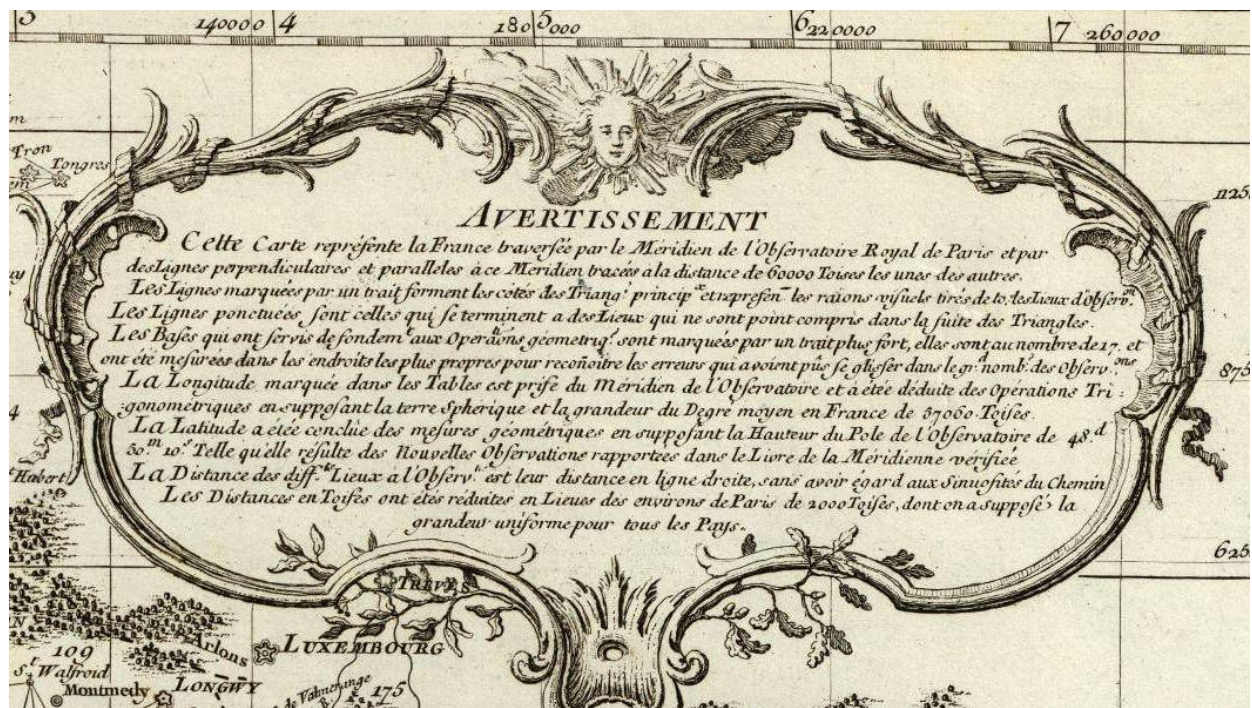 3 140000 4 180000 5 6 220000 7 260000
Tron
Tongres
1125
AVERTISSEMENT
Cette Carte represente la France traversée par le Méridien de l'Observatoire Royal de Paris et par
des Lignes perpendiculaires et paralleles à ce Meridien tracées à la distance de 60000 Toises les unes des autres.
Les Lignes marquées par un trait forment les côtés des Triang.^s princip.^x et represen.^t les raions visuels tirés de to.^s les Lieux d'Observ.^on
Les Lignes ponctuées sont celles qui se terminent a des Lieux qui ne sont point compris dans la suite des Triangles.
Les Bases qui ont servis de fondem.^t aux Operãtions géometriq.^s sont marquées par un trait plus fort, elles sont au nombre de 17. et
ont été mesurées dans les endroits les plus propres pour recoñoitre les erreurs qui avoient pûs se glisser dans le gr.^d nomb.^e des Observ.^ons
875
La Longitude marquée dans les Tables est prise du Méridien de l'Observatoire et à étée déduite des Opérations Tri:
gonometriques en supposant la terre Spherique et la grandeur du Degre moyen en France de 57060. Toises.
La Latitude a étée conclüe des mesures géométriques en supposant la Hauteur du Pole de l'Observatoire de 48.^d
50.^m 10.^s Telle qu'elle résulte des Nouvelles Observations rapportées dans le Livre de la Méridienne vérifiée
La Distance des diff.^ts Lieux à l'Observ.^re est leur distance en ligne droite, sans avoir égard aux Sinuosités du Chemin
Hubert
Les Distances en Toises ont étés réduites en Lieues des environs de Paris de 2000 Toises, dont on a supposé la
grandeur uniforme pour tous les Pays.
625
TREVES
Arlons
LUXEMBOURG
109
S.^t Walfroid
Montmedy
LONGWY
de Valmerange
175